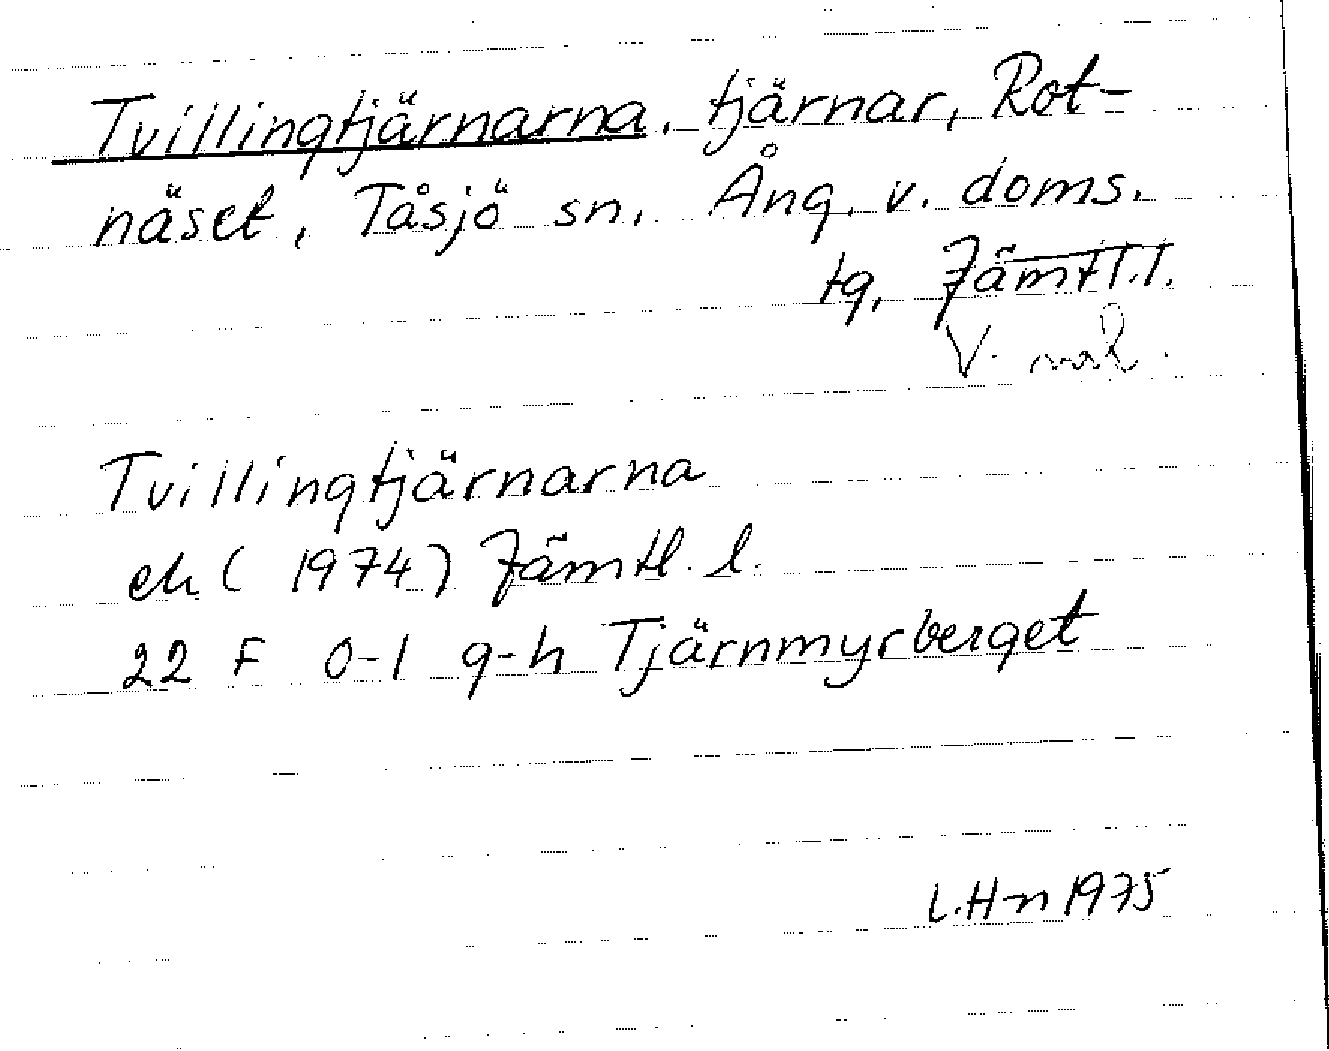 Tvillingtjärnarna, tjärnar, Rot-
näset, Tåsjö sn, Ång. v. doms.
tg, Jämtl.l.
Tvillingtjärnarna
ek (1974) Jämtl. l.
22 F 0-1 g-h Tjärnmyrberget
L.H-n 1975